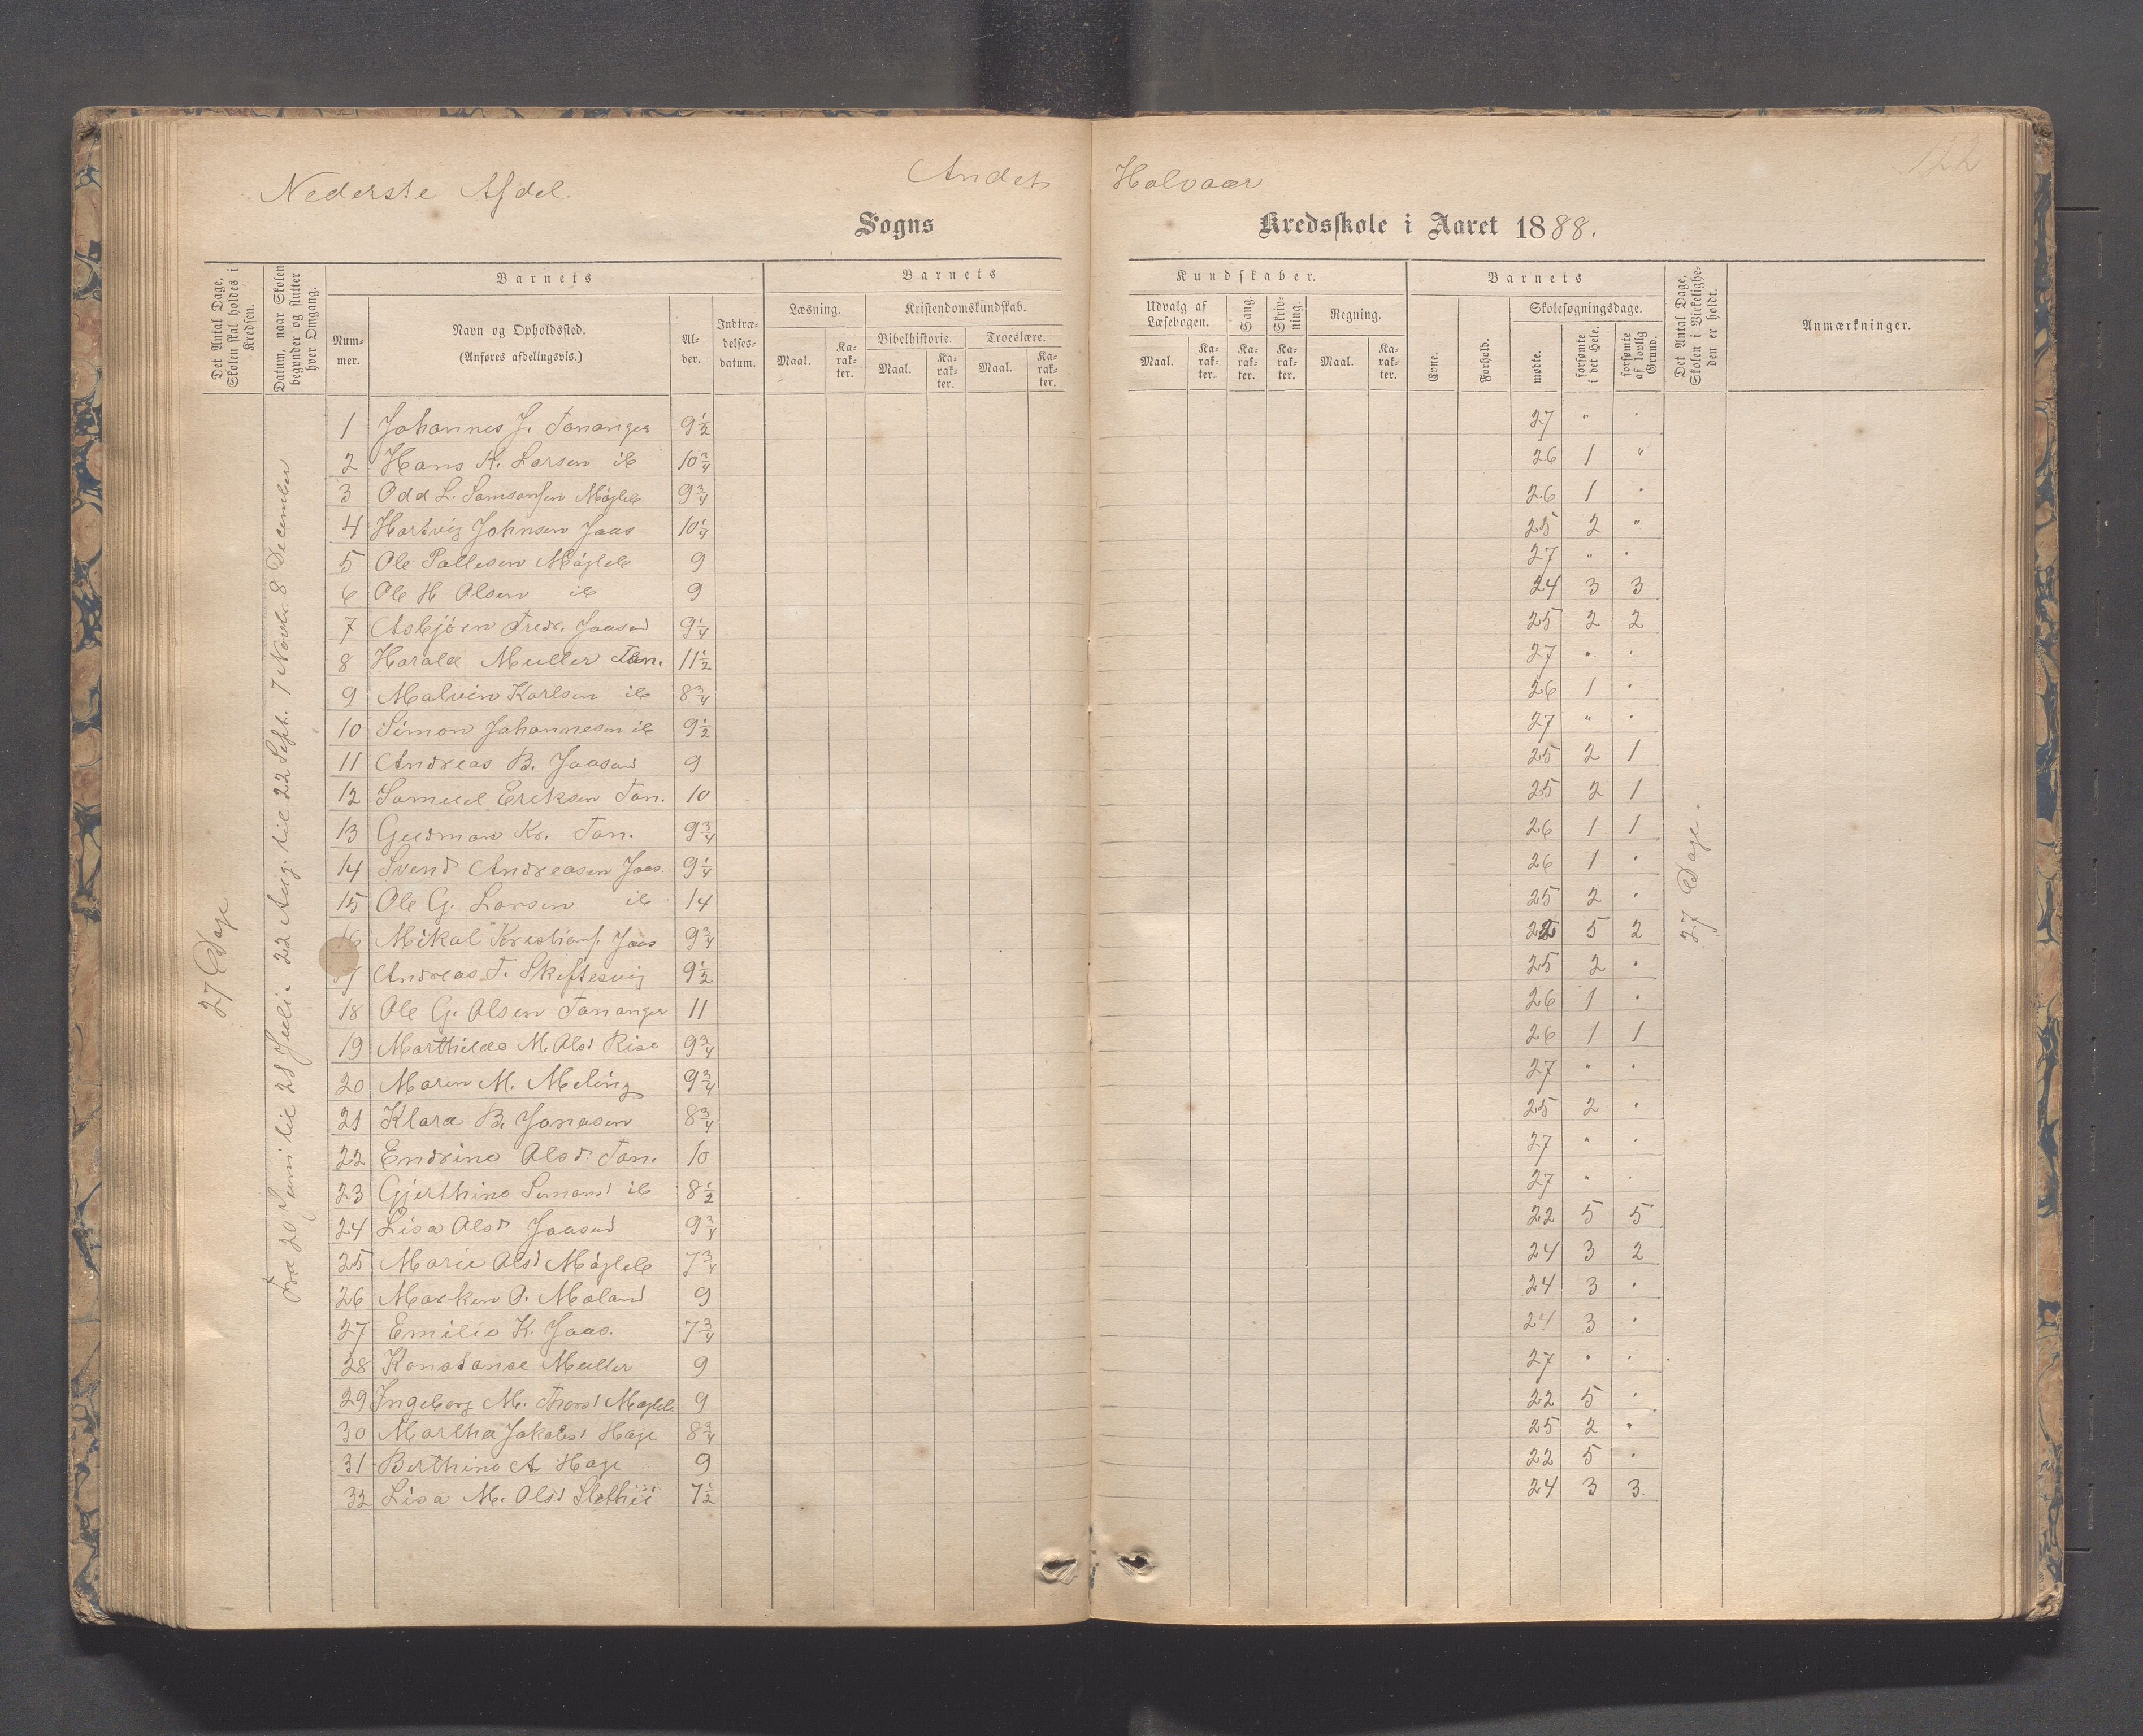 122
Nederste Afdel. Andet Halvaar
Sogns Kredsskole i Aaret 1888.
Det Antal Dage, Skolen skal holdes i Kredsen.
Datum, naar Skolen begynder og slutter hver Omgang.
Barnets
Num-mer.
Navn og Opholdssted. (Anføres afdelingsvis.)
Al-der.
Indtræ-delses-datum.
Barnets Kundskaber.
Læsning. Maal. Ka-rak-ter.
Kristendomskundskab.
Bibelhistorie. Maal. Ka-rak-ter.
Troeslære. Maal. Ka-rak-ter.
Udvalg af Læsebogen. Maal. Ka-rak-ter.
Sang. Ka-rak-ter.
Skriv-ning. Ka-rak-ter.
Regning. Maal. Ka-rak-ter.
Barnets
Evne.
Forhold.
Skolesøgningsdage.
mødte.
forsømte i det Hele.
forsømte af lovlig Grund.
Det Antal Dage, Skolen i Virkelighe-den er holdt.
Anmærkninger.
27 Dage
Fra 20 Juni til 28 Juli. 22 Aug. til 22 Sept. 7 Novbr. 8 December
27 Dage.
1 Johannes J. Tananger 9½ 27 " "
2 Hans K. Larsen ib 10¾ 26 1 "
3 Odd L. Samsonsen Mójleb 9¾ 26 1 "
4 Hartvig Johnsen Jaas 10¼ 25 2 "
5 Ole Pallesen Mójleb 9 27 " "
6 Ole H Olsen ib 9 24 3 3
7 Asbjörn Fredr. Jaasad 9¼ 25 2 2
8 Harald Muller Tan. 11½ 27 " "
9 Malvin Karlsen ib 8¾ 26 1 "
10 Simon Johannesen ib 9½ 27 " "
11 Andreas B. Jaasad 9 25 2 1
12 Samuel Eriksen Tan. 10 25 2 1
13 Gudman Kr. Tan. 9¾ 26 1 1
14 Svend Andreasen Jaas. 9¼ 26 1 "
15 Ole G. Larsen ib 14 25 2 "
16 Mikal Kristians. Jaas 9¾ 22 5 2
17 Andreas T. Skiftesvig 9½ 25 2 "
18 Ole G. Olsen Tananger 11 26 1 "
19 Marthilda M. Olsd Risa 9¾ 26 1 1
20 Maren M. Meling 9¾ 27 " "
21 Klara B. Jonasen 8¾ 25 2 "
22 Endrine Olsd. Tan. 10 27 " "
23 Gjerthine Simonsd ib 8½ 27 " "
24 Lisa Olsd Jaasad 9¾ 22 5 5
25 Marie Olsd Mójleb 7¾ 24 3 2
26 Marken O. Maland 9 24 3 "
27 Emilie K. Jaas. 7¾ 24 3 "
28 Konstanse Muller 9 27 " "
29 Ingeborg M. Thorsd Mojleb 9 22 5 "
30 Martha Jakobsd Haga 8¾ 25 2 "
31 Berthine A Haga 9 22 5 "
32 Lisa M. Olsd 7½ 24 3 3